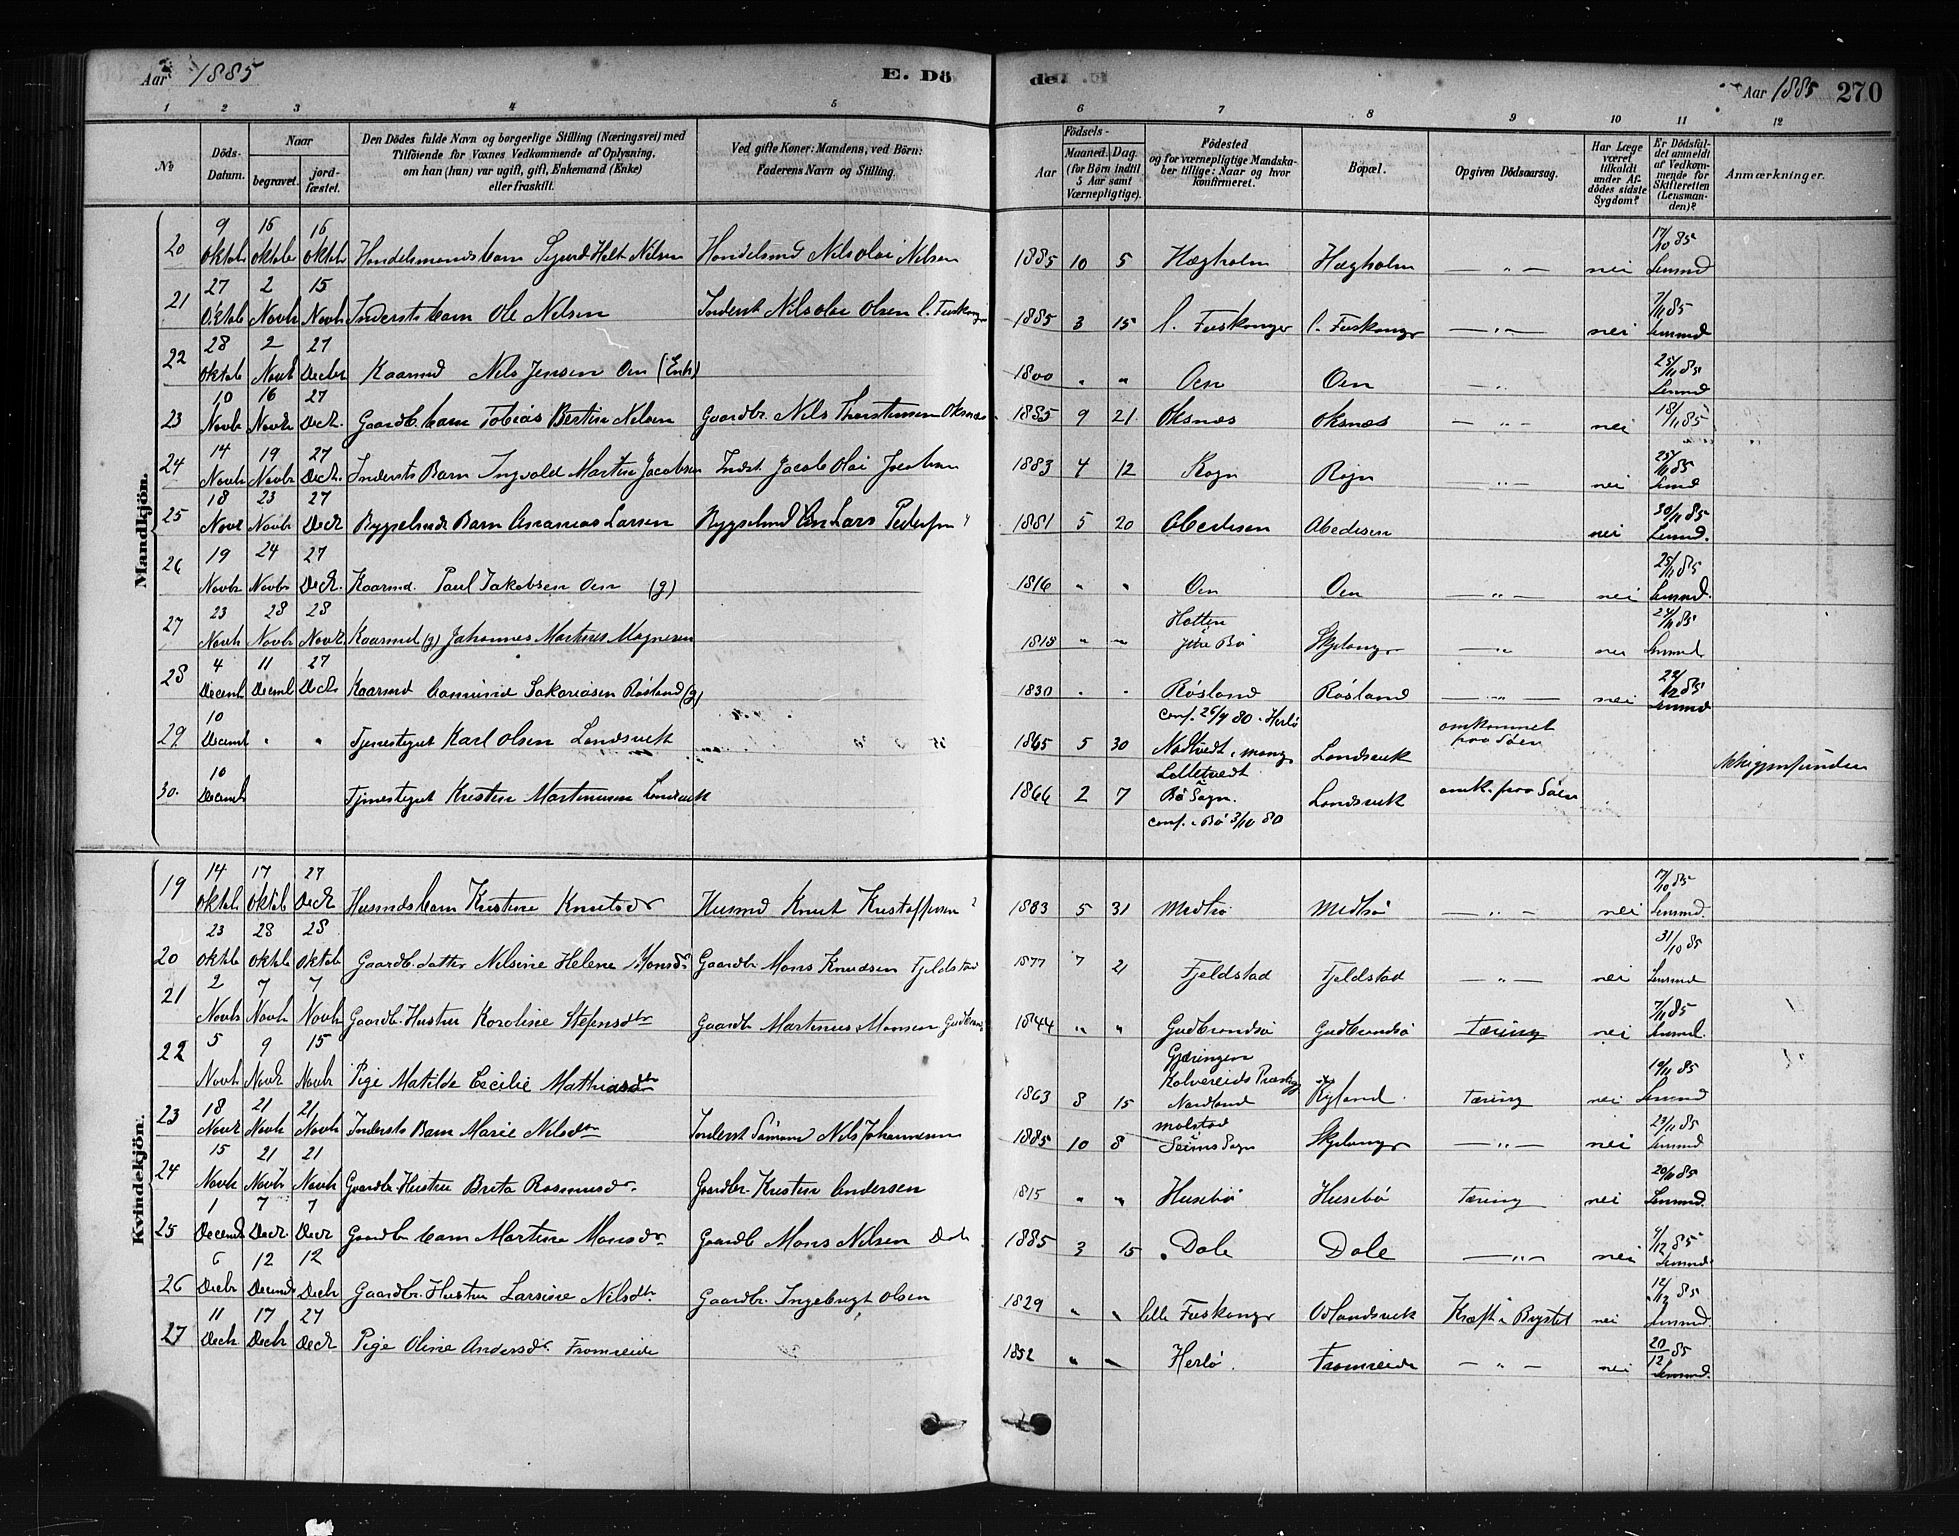 Aar 1885 E. Dö de. Aar 1885 270
1 2 3 4 5 6 7 8 9 10 11 12
No Döds-Datum. Naar begravet. jordfæstet. Den Dödes fulde Navn og borgerlige Stilling (Næringsvei) med Tilföiende for Voxnes Vedkommende af Oplysning, om han (hun) var ugift, gift, Enkemand (Enke) eller fraskilt. Ved gifte Koner: Mandens, ved Börn: Faderens Navn og Stilling. Aar Födsels- Maaned. Dag. (for Børn indtil 5 Aar samt Værnepligtige). Födested og for værnepligtige Mandskaber tillige: Naar og hvor konfirmeret. Bopæl. Opgiven Dödsaarsag. Har Læge været tilkaldt under Afdødes sidste Sygdom? Er Dödsfaldet anmeldt af Vedkommende for Skifteretten (Lensmanden)? Anmærkninger.
Mandkjön.
20 9 Oktob 16 Oktob 16 Oktob Handelsmands barn Sjurd Holt Nilsen Handelsmd Nils Olai Nilsen 1885 10 5 Hægholm Hægholm — " — nei 17/10 85 Lensmd
21 27 Oktob 2 Novb 15 Novb Indersts barn Ole Nilsen Inderst Nils Olai Olsen l. Fuskanger 1885 3 15 l. Fuskanger l. Fuskanger — " — nei 7/11 85 Lensmd
22 28 Oktob 2 Novb 27 Decbr Kaarmd Nils Jensen Oen (Enk) 1800 " " Oen Oen — " — 25/11 85 Lensmd
23 10 Novb 16 Novb 27 Decb. Gaardb. barn Tobias Bertin Nilsen Gaardbr. Nils Thorstensen Oksnæs 1885 9 21 Oksnæs Oksnæs — " — nei 18/11 85
24 14 Novb 19 Novb 27 Decb. Indersts Barn Ingvald Martin Jacobsen Indst. Jacob Olai 1883 4 12 Rogn Rogn — " — nei 25/11 85 Lensmd
25 18 Novb 23 Novb 27 Decb Barn Ananias Larsen Lars Pedersen 1881 5 20 nei 30/11 85 Lensmd.
26 19 Novb 24 Novb 27 Decb. Kaarmd. Paul Jakobsen Oen (g) 1816 " " Oen Oen — " — nei 25/11 85 Lensmd.
27 23 Novb 28 Novb 28 Novb Kaarmd (g) Johannes Martines Magnesen 1818 " " Holten Ytre Bö Skjelanger — " — nei 24/11 85 Lensmd
28 4 Decemb 11 Decemb 27 Decb Kaarmd Sakariasen Røsland (g) 1830 " " Røsland Røsland — " — nei 22/12 85 Lensmd
29 10 Decemb " " Tjenestegut Karl Olsen Landsvik 1865 5 30 conf. 25/4 80 i Herlö Nodtvedt i Mang Landsvik omkommet paa Söen
Ikkigjenfunden
30. 10 Decemb Tjenestegut Kristen Martinusen Landsvik 1866 2 7 Loltetvedt Bö Sogn. conf. i Bö 3/10 80 Landsvik omk. paa Söen
Kvindekjön.
19 14 Oktob 17 Oktob 27 Decb Husmdsbarn Kristine Knutsdr Husmd Knut Kristoffersen 1883 5 31 Medtsö Medtsö — " — nei 17/10 85 Lensmd.
20 23 Oktb 28 Oktb 28 Oktob Gaardb. datter Nilsine Helene Monsdr Gaardbr Mons Knudsen Fjeldstad 1877 7 21 Fjeldstad Fjeldstad — " — nei 31/10 85 Lensmd
21 2 Novb 7 Novb 7 Novb Gaardb. Hustru Karoline Stefensdtr Gaardbr Martinus Monsen Gudbrands 1844 " " Gudbrandsö Gudbrandsö Tæring nei 7/11 85 Lensmd.
22 5 Novb 9 Novb 15 Novbr Pige Matilde Cecilie Mathiasdtr 1863 8 15 Gjæringen Kolvereids Præstg Nordland Ryland. Tæring nei 19/11 85 Lensmd
23 18 Novb 21 Novb 21 Novb Indersts Barn Marie Nilsdtr Inderst Sömand Nils Johannesen 1885 10 8 Molstad Seims Sogn Skjelanger — " — nei 23/11 85 Lensmd
24 15 Novb 21 Novb 21 Novb Gaardbr Hustru Brita Rasmusdr. Gaardbr. Kristen Andersen 1815 " " Husebö Husebö Tæring nei 20/11 85 Lensmd.
25 1 Decemb 7 Decb. 7 Decb Gaardbr barn Martine Monsdr. Gaardb Mons Nilsen Dale 1885 3 15 Dale Dale — " — nei 9/12 85 Lensmd.
26 6 Decbr 12 Decemb 12 Decb Gaardbr. Hustru Larsine Nilsdtr. Gaardbr. Ingebrigt Olsen 1829 " " lille Fuskanger Odlandsvik Kræft i Brystet nei 12/12 85 Lensmd.
27 11 Decb. 17 Decb 27 Decb Pige Oline Andersdr. Fromreide 1852 " " Herlö. Fromreide — " — nei 20/12 85 Lensmd.